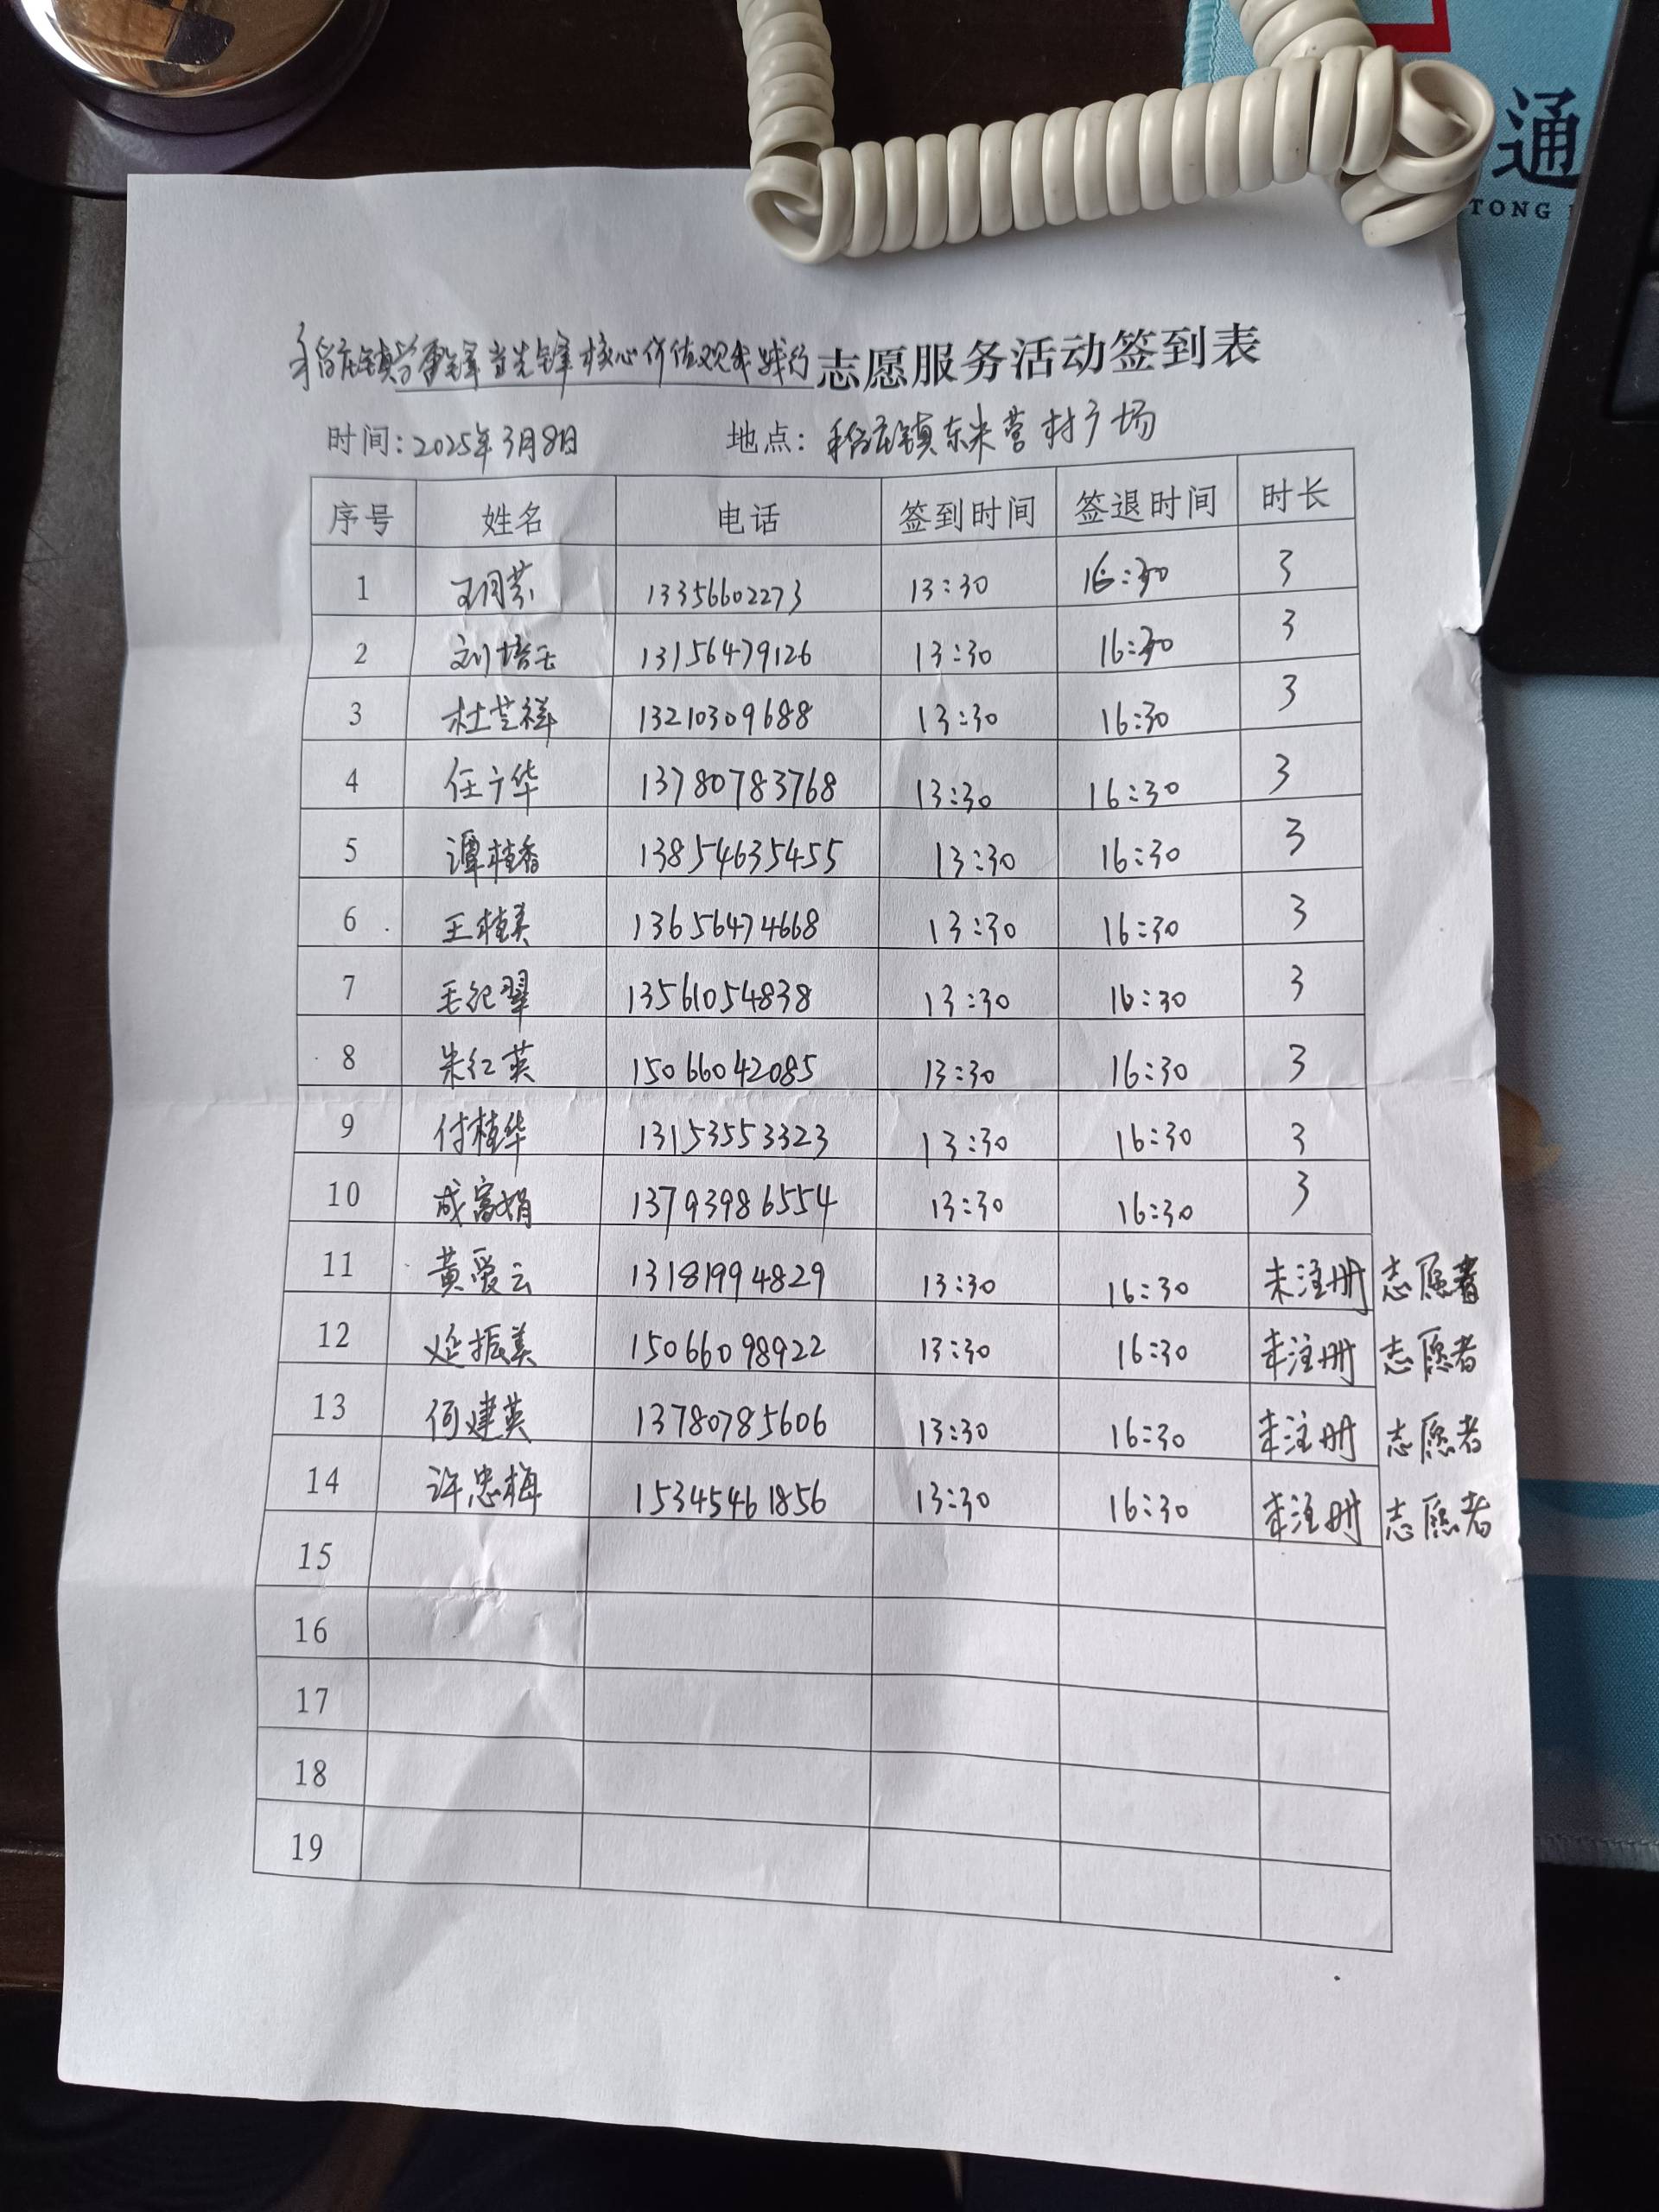 通
TONG
稻庄镇学雷锋当先锋核心价值观我践行志愿服务活动签到表
时间:2025年3月8日 地点:稻庄镇东朱营村广场
序号 姓名 电话 签到时间 签退时间 时长
1 13356602273 13:30 16:30 3
2 刘培玉 13156479126 13:30 16:30 3
3 杜芝祥 13210309688 13:30 16:30 3
4 任广华 13780783768 13:30 16:30 3
5 谭桂香 13854635455 13:30 16:30 3
6 王桂美 13656474668 13:30 16:30 3
7 毛纪翠 13561054838 13:30 16:30 3
8 朱红英 15066042085 13:30 16:30 3
9 付桂华 13153553323 13:30 16:30 3
10 成富娟 13793986554 13:30 16:30 3
11 黄爱云 13181994829 13:30 16:30 未注册志愿者
12 延振美 15066098922 13:30 16:30 未注册志愿者
13 何建英 13780785606 13:30 16:30 未注册志愿者
14 许忠梅 15345461856 13:30 16:30 未注册志愿者
15
16
17
18
19